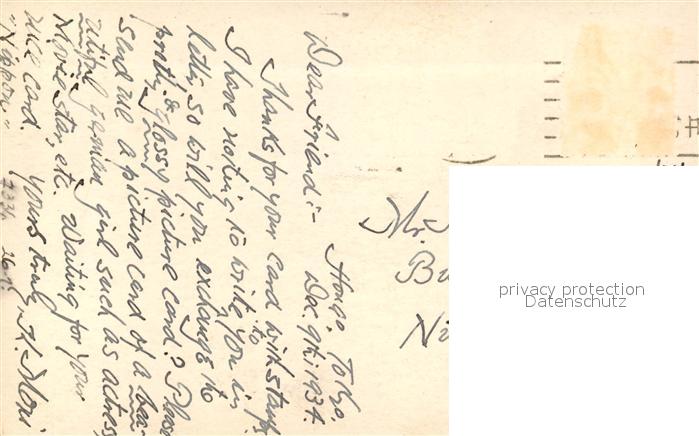 Hongo. Tokio.
Dec. 9th, 1934.
Dear Friend:-
Thanks for your card with stamp,
to
I have noting to write you in
letter, so will you exchange the
pretty & glossy picture card? Please
send me a picture card of a beau-
utiful german girl such as actress,
Movie star, etc. Waiting for your
nice card. Yours truly, K. Mori
"Nippon."
Mr.
Bu
Ni
privacy protection
Datenschutz